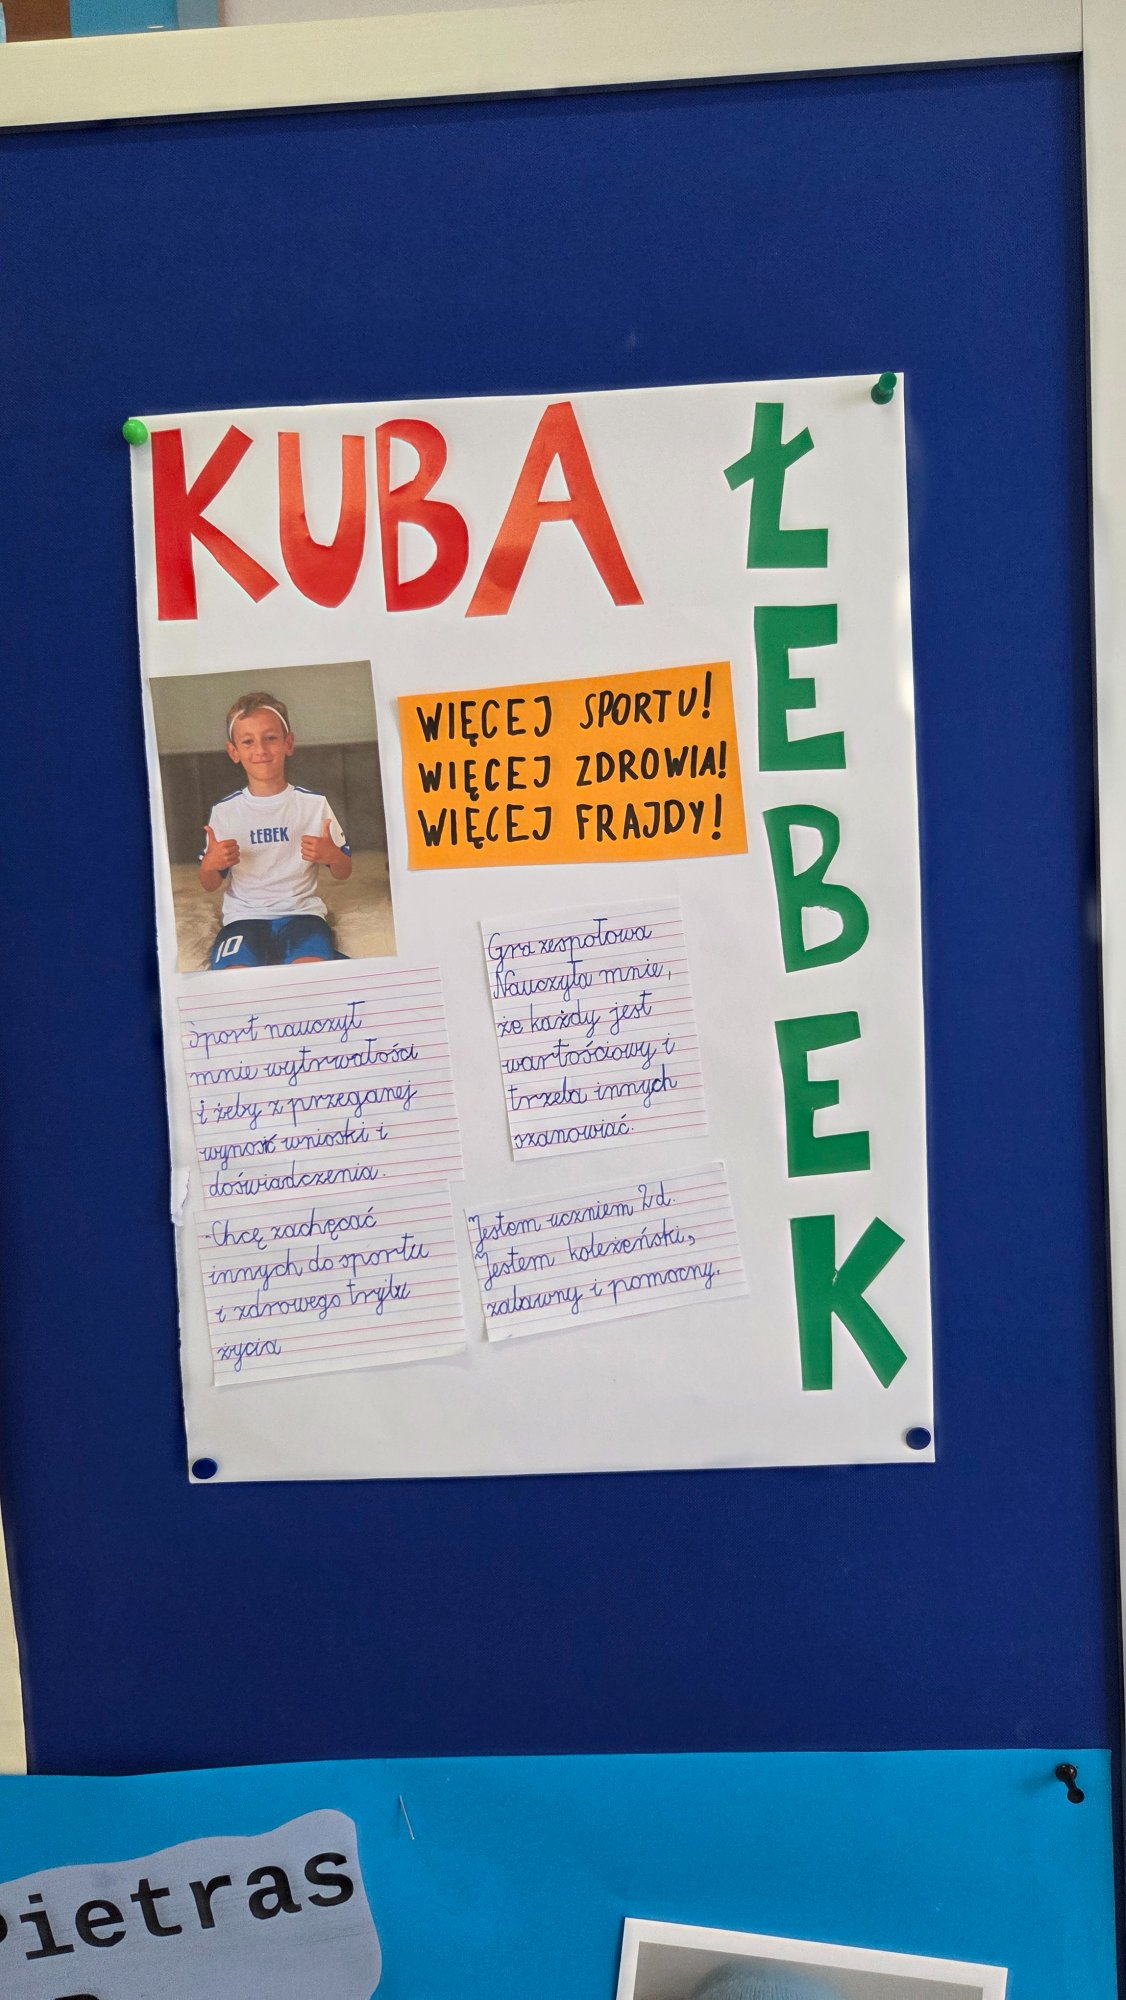 KUBA
ŁEBEK
WIĘCEJ SPORTU!
WIĘCEJ ZDROWIA!
WIĘCEJ FRAJDY!
ŁEBEK
10
Sport nauczył
mnie wytrwałości
i żeby z przeganej
wynosić wnioski i
doświadczenia.
Gra zespołowa
Nauczyła mnie,
że każdy jest
wartościowy i
trzeba innych
szanować.
-Chcę zachęcać
innych do sportu
i zdrowego trybu
życia
Jestem uczniem 2d.
Jestem koleżeński,
zabawny i pomocny.
Pietras